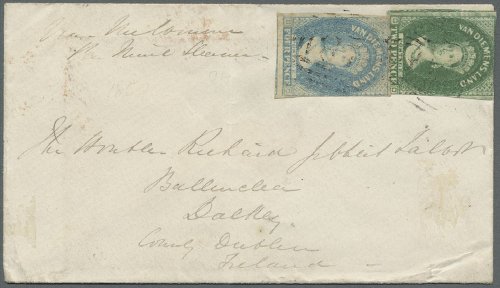 Via Melbourne
Per Mail Steamer
VAN DIEMEN'S LAND
FOUR PENCE
VAN DIEMEN'S LAND
TWO PENCE
The Honble Richard Gilbert Talbot
Ballinclea
Dalkey
County Dublin
Ireland